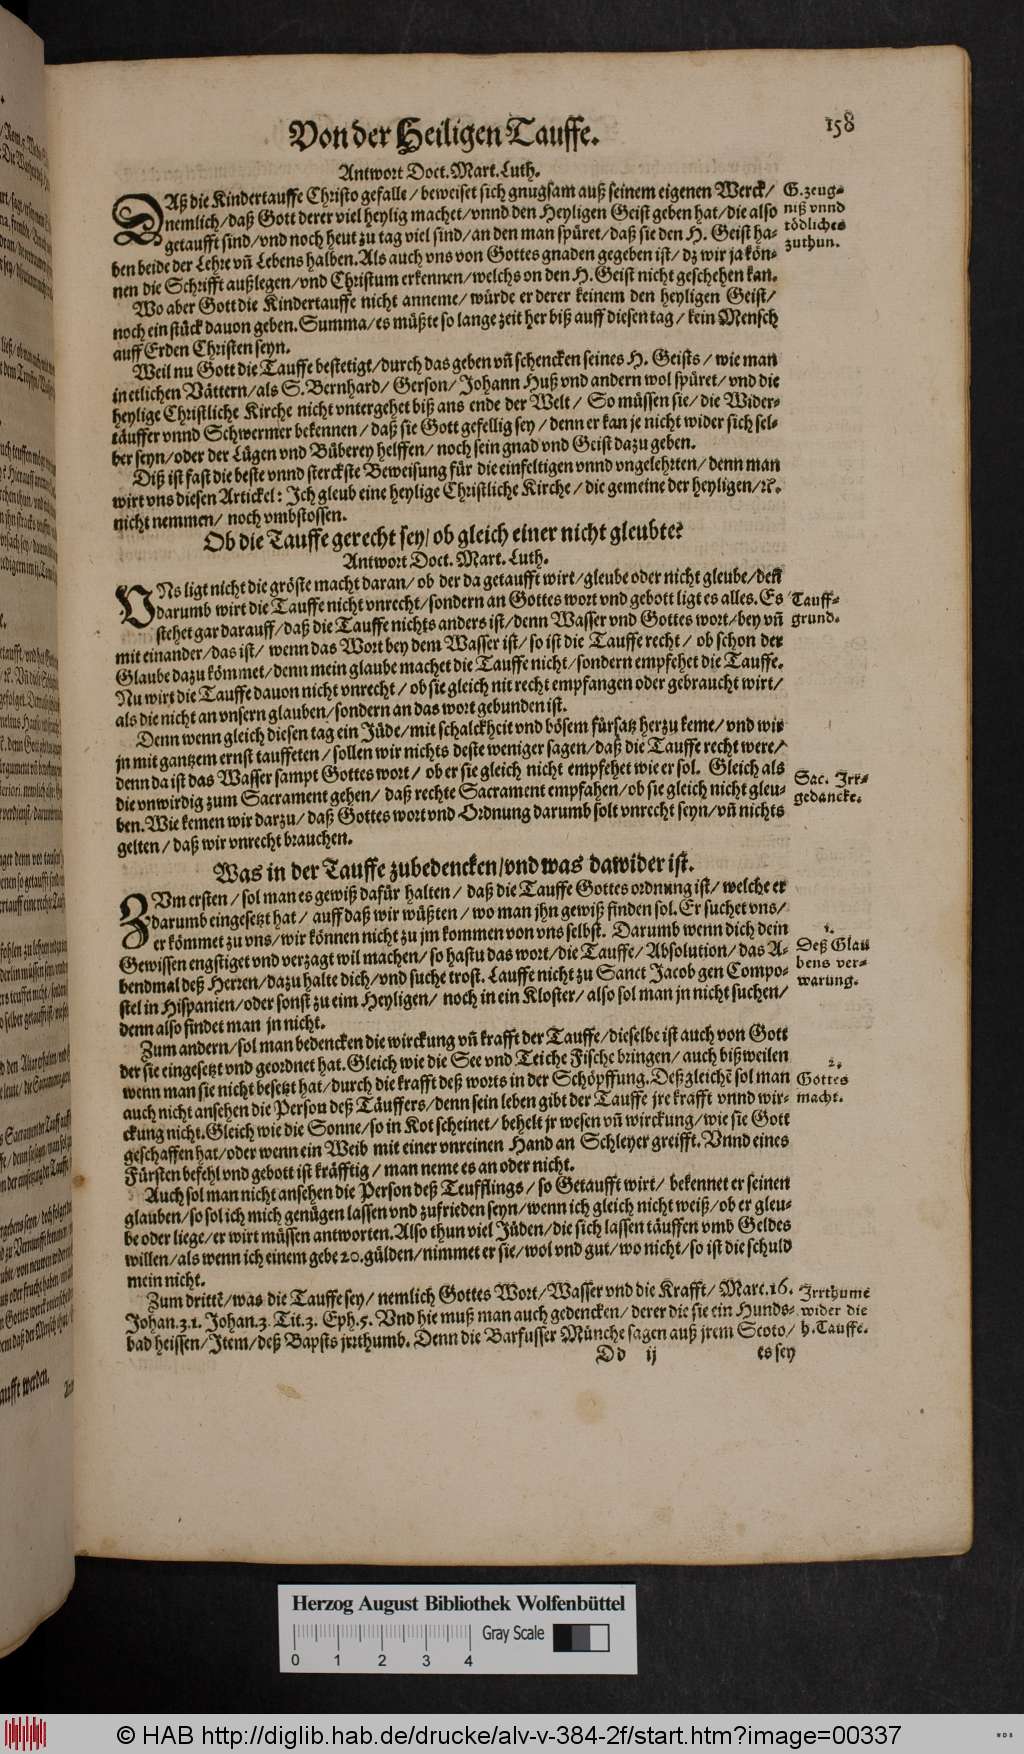 Von der Heiligen Tauffe.
158
Antwort Doct. Mart. Luth.
DAß die Kindertauffe Christo gefalle / beweiset sich gnugsam auß seinem eigenen Werck /
nemlich / daß Gott derer viel heylig machet / vnnd den Heyligen Geist geben hat / die also
getaufft sind / vnd noch heut zu tag viel sind / an den man spüret / daß sie den H. Geist ha-
ben beide der Lehre vñ Lebens halben. Als auch vns von Gottes gnaden gegeben ist / dz wir ja kön-
nen die Schrifft außlegen / vnd Christum erkennen / welchs on den H. Geist nicht geschehen kan.
G. zeug-
niß vnnd
tödliches
zuthun.
Wo aber Gott die Kindertauffe nicht anneme / würde er derer keinem den heyligen Geist /
noch ein stück dauon geben. Summa / es müßte so lange zeit her biß auff diesen tag / kein Mensch
auff Erden Christen seyn.
Weil nu Gott die Tauffe bestetigt / durch das geben vñ schencken seines H. Geists / wie man
in etlichen Vättern / als S. Bernhard / Gerson / Johann Huß vnd andern wol spüret / vnd die
heylige Christliche Kirche nicht vntergehet biß ans ende der Welt / So müssen sie / die Wider-
täuffer vnnd Schwermer bekennen / daß sie Gott gefellig sey / denn er kan je nicht wider sich sel-
ber seyn / oder der Lügen vnd Büberey helffen / noch sein gnad vnd Geist dazu geben.
Diß ist fast die beste vnnd sterckste Beweisung für die einfeltigen vnnd vngelehrten / denn man
wirt vns diesen Artickel: Ich gleub eine heylige Christliche Kirche / die gemeine der heyligen / ꝛc.
nicht nemmen / noch vmbstossen.
Ob die Tauffe gerecht sey / ob gleich einer nicht gleubte?
Antwort Doct. Mart. Luth.
VNs ligt nicht die gröste macht daran / ob der da getaufft wirt / gleube oder nicht gleube / deñ
darumb wirt die Tauffe nicht vnrecht / sondern an Gottes wort vnd gebott ligt es alles. Es
stehet gar darauff / daß die Tauffe nichts anders ist / denn Wasser vnd Gottes wort / bey vñ
mit einander / das ist / wenn das Wort bey dem Wasser ist / so ist die Tauffe recht / ob schon der
Glaube dazu kömmet / denn mein glaube machet die Tauffe nicht / sondern empfehet die Tauffe.
Nu wirt die Tauffe dauon nicht vnrecht / ob sie gleich nit recht empfangen oder gebraucht wirt /
als die nicht an vnsern glauben / sondern an das wort gebunden ist.
Tauff-
grund.
Denn wenn gleich diesen tag ein Jüde / mit schalckheit vnd bösem fürsatz herzu keme / vnd wir
jn mit gantzem ernst tauffeten / sollen wir nichts deste weniger sagen / daß die Tauffe recht were /
denn da ist das Wasser sampt Gottes wort / ob er sie gleich nicht empfehet wie er sol. Gleich als
die vnwirdig zum Sacrament gehen / daß rechte Sacrament empfahen / ob sie gleich nicht gleu-
ben. Wie kemen wir darzu / daß Gottes wort vnd Ordnung darumb solt vnrecht seyn / vñ nichts
gelten / daß wir vnrecht brauchen.
Sac. Irr-
gedancke.
Was in der Tauffe zubedencken / vnd was dawider ist.
ZVm ersten / sol man es gewiß dafür halten / daß die Tauffe Gottes ordnung ist / welche er
darumb eingesetzt hat / auff daß wir wüßten / wo man jhn gewiß finden sol. Er suchet vns /
er kömmet zu vns / wir können nicht zu jm kommen von vns selbst. Darumb wenn dich dein
Gewissen engstiget vnd verzagt wil machen / so hastu das wort / die Tauffe / Absolution / das A-
bendmal deß Herren / dazu halte dich / vnd suche trost. Lauffe nicht zu Sanct Jacob gen Compo-
stel in Hispanien / oder sonst zu eim Heyligen / noch in ein Kloster / also sol man jn nicht suchen /
denn also findet man jn nicht.
1.
Deß Glau
bens ver-
warung.
Zum andern / sol man bedencken die wirckung vñ krafft der Tauffe / dieselbe ist auch von Gott
der sie eingesetzt vnd geordnet hat. Gleich wie die See vnd Teiche Fische bringen / auch bißweilen
wenn man sie nicht besetzt hat / durch die krafft deß worts in der Schöpffung. Deßgleichē sol man
auch nicht ansehen die Person deß Täuffers / denn sein leben gibt der Tauffe jre krafft vnnd wir-
ckung nicht. Gleich wie die Sonne / so in Kot scheinet / behelt jr wesen vñ wirckung / wie sie Gott
geschaffen hat / oder wenn ein Weib mit einer vnreinen Hand an Schleyer greifft. Vnnd eines
Fürsten befehl vnd gebott ist kräfftig / man neme es an oder nicht.
2.
Gottes
macht.
Auch sol man nicht ansehen die Person deß Teufflings / so Getaufft wirt / bekennet er seinen
glauben / so sol ich mich genügen lassen vnd zufrieden seyn / wenn ich gleich nicht weiß / ob er gleu-
be oder liege / er wirt müssen antworten. Also thun viel Jüden / die sich lassen täuffen vmb Geldes
willen / als wenn ich einem gebe 20. gülden / nimmet er sie / wol vnd gut / wo nicht / so ist die schuld
mein nicht.
Zum drittē / was die Tauffe sey / nemlich Gottes Wort / Wasser vnd die Krafft / Marc. 16.
Johan. 3. 1. Johan. 3. Tit. 3. Eph. 5. Vnd hie muß man auch gedencken / derer die sie ein Hunds-
bad heissen / Item / deß Bapsts jrrthumb. Denn die Barfusser Münche sagen auß jrem Scoto /
Irrthume
wider die
h. Tauffe.
Dd ij
es sey
Herzog August Bibliothek Wolfenbüttel
Gray Scale
0 1 2 3 4
© HAB http://diglib.hab.de/drucke/alv-v-384-2f/start.htm?image=00337